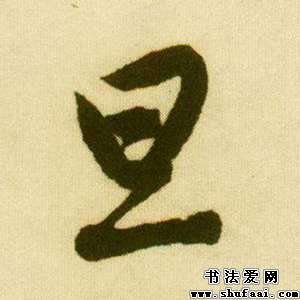 旦
书法爱网
www.shufaai.com